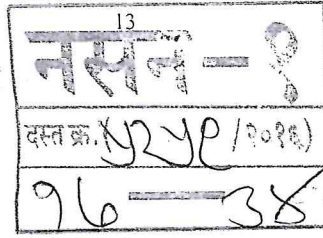 13
नसन - १
दस्त क्र. (५२५९ /२०१६)
१७ — ३४